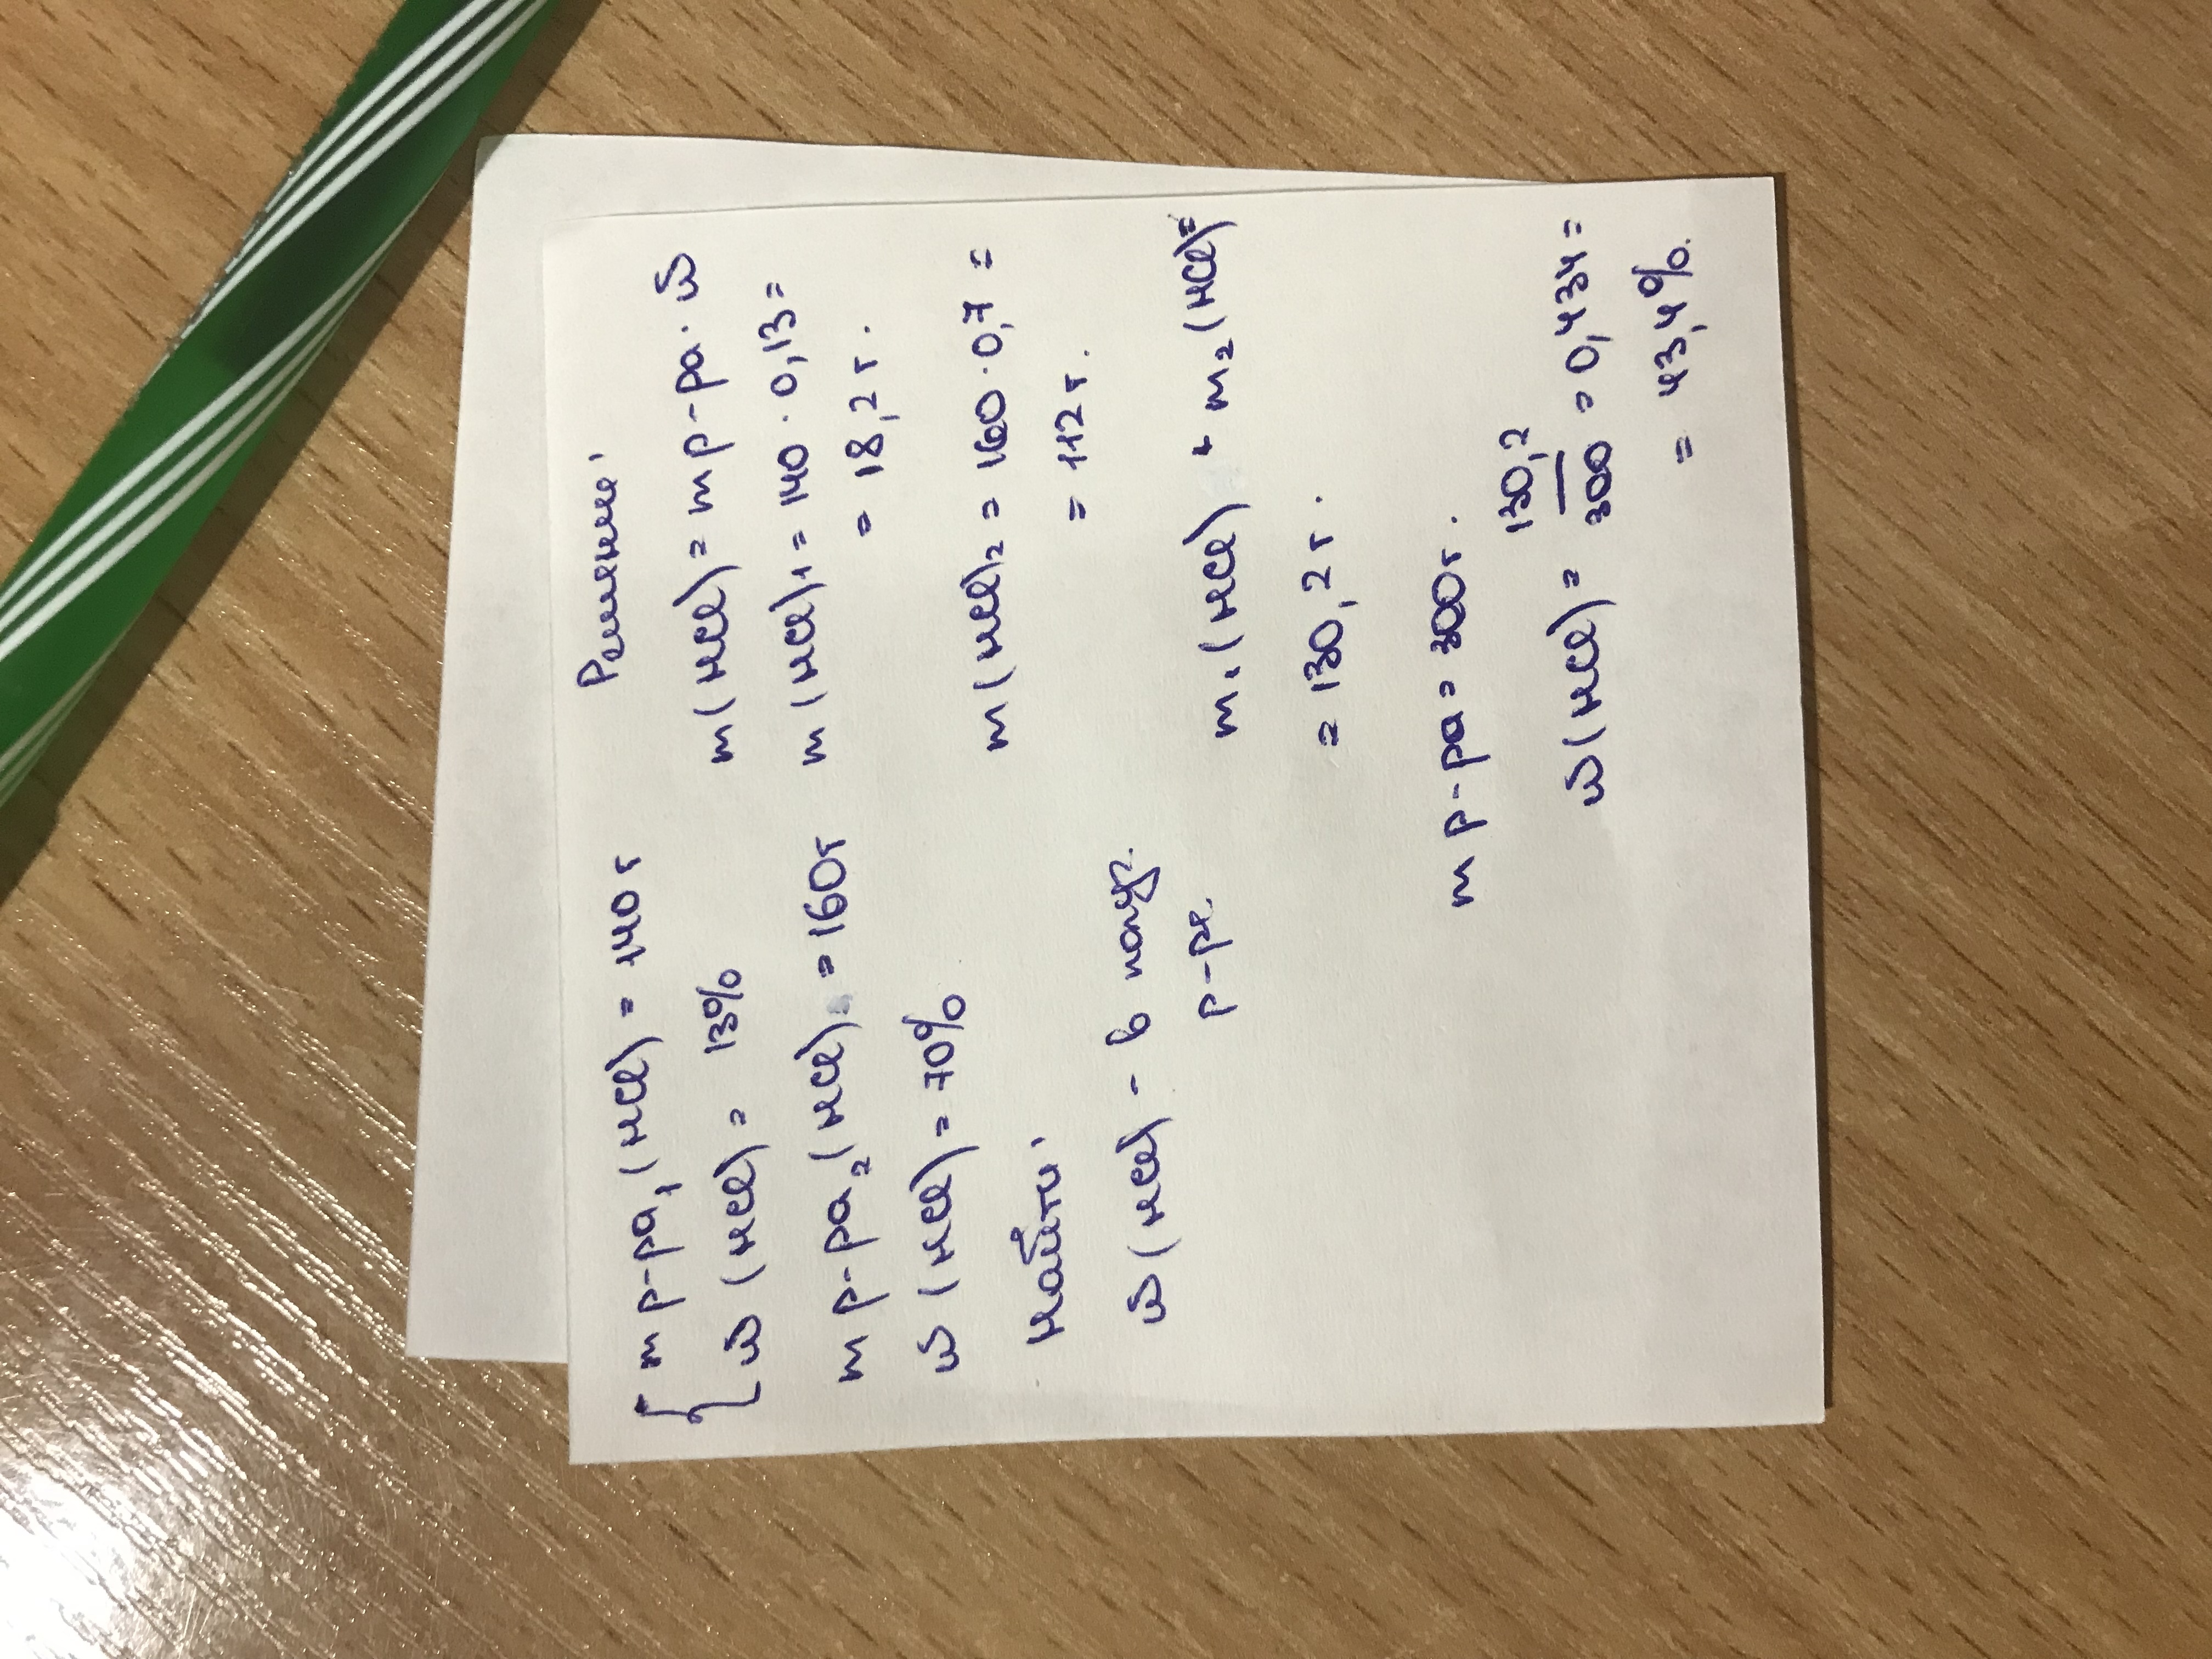 m р-ра₁(HCl) = 140 г
ω(HCl) = 13%
m р-ра₂(HCl) = 160г
ω(HCl) = 70%
Найти:
ω(HCl) - в получ.
р-ре.
Решение:
m(HCl) = m р-ра · ω
m(HCl)₁ = 140 · 0,13 =
= 18,2 г.
m(HCl)₂ = 160 · 0,7 =
= 112 г.
m₁(HCl) + m₂(HCl) =
= 130,2 г.
m р-ра = 300г.
ω(HCl) = 130,2/300 = 0,434 =
= 43,4%.